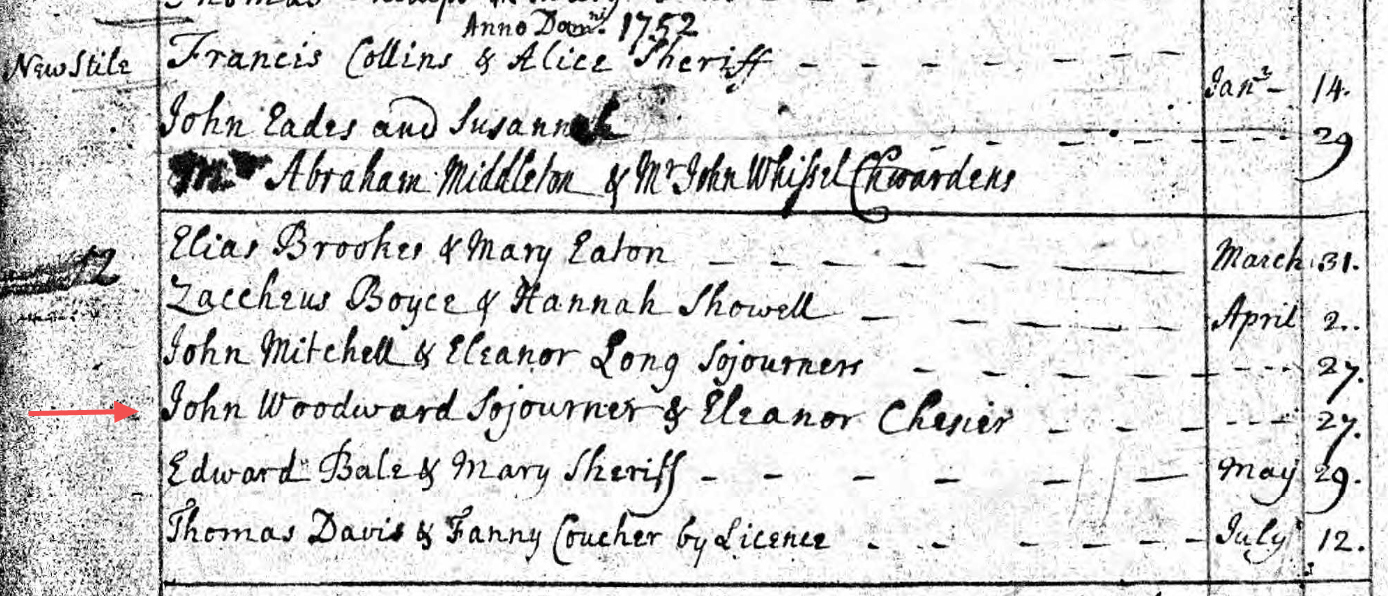 Anno Dom.ni 1752
New Stile Francis Collins & Alice Sheriff - - - - - - - Jan.ry - 14.
John Eades and Susannah - - - - - - 29
Mr Abraham Middleton & Mr John Whissel Chwardens
52 Elias Brookes & Mary Eaton - - - - - - March 31.
Zaccheus Boyce & Hannah Showell - - - - - April 2.
John Mitchell & Eleanor Long Sojourners - - - - - - 27.
John Woodward Sojourner & Eleanor Chesier - - - - - 27.
Edward Bale & Mary Sheriff - - - - - - May 29.
Thomas Davis & Fanny Coucher by Licence - - - - - - July 12.